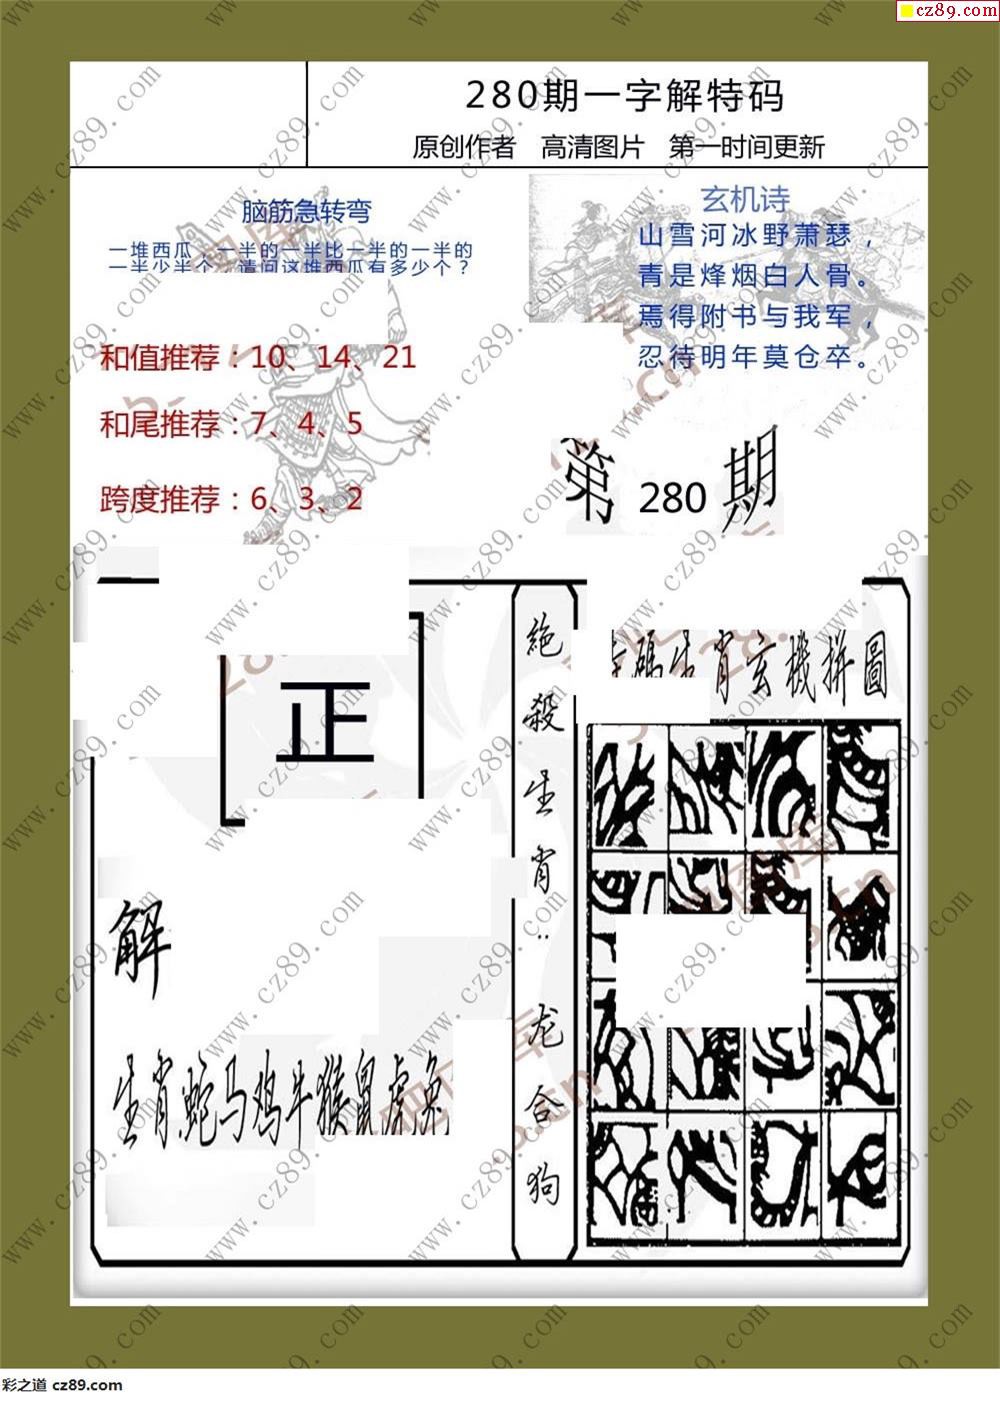 cz89.com
280期一字解特码
原创作者 高清图片 第一时间更新
脑筋急转弯
一堆西瓜，一半的一半比一半的一半的
一半少半个，请问这堆西瓜有多少个？
和值推荐：10、14、21
和尾推荐：7、4、5
跨度推荐：6、3、2
玄机诗
山雪河冰野萧瑟，
青是烽烟白人骨。
焉得附书与我军，
忍待明年莫仓卒。
第 280 期
正
解
生肖蛇马鸡牛猴鼠虎兔
絕殺生肖：龙合狗
碼生肖玄機拼圖
www.cz89.com
彩之道 cz89.com